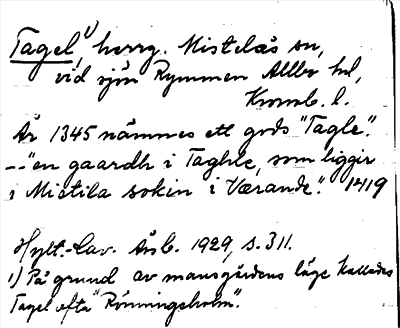 Tagel,¹⁾ herrg. Mistelås sn,
vid sjön Rymmen Allbo hd,
Kronob. l.
År 1345 nämnes ett gods "Tagle".
-- "en gaardh i Taghle, som liggir
i Mistila sokin i Værande". 1419
Hylt.-Cav. Årsb. 1929, s. 311.
1) På grund av mansgårdens läge kallades
Tagel ofta "Rönningsholm".